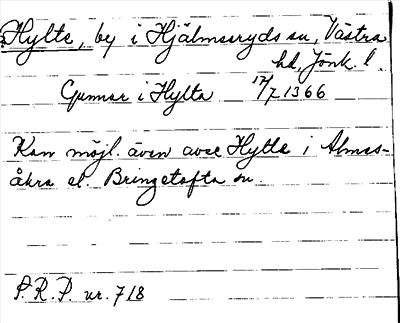 Hylte, by i Hjälmseryds sn, Västra
hd, Jönk. l.
Gunnar i Hylta 17/7 1366
Kan möjl. även avse Hylte i Almes-
åkra el. Bringetofta sn.
P.R.P. nr. 718